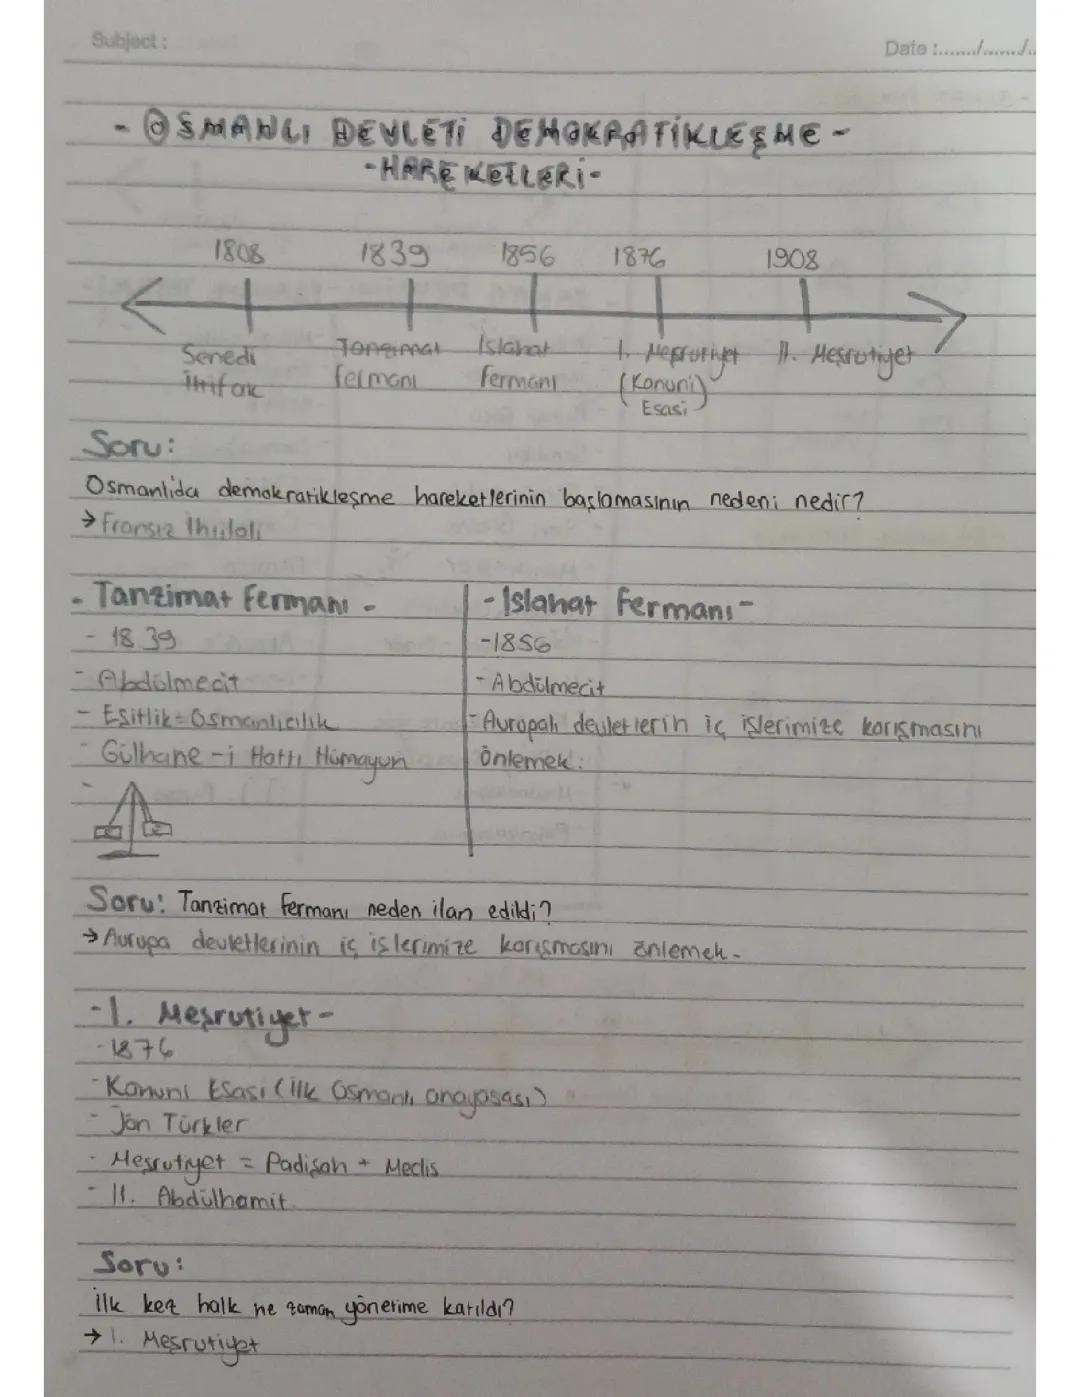 Subject:
Date :......./......./..
- OSMANLI DEVLETİ DEMOKRATİKLEŞME -
- HAREKETLERİ -
1808 1839 1856 1876 1908
Senedi Tanzimat Islahat I. Meşrutiyet II. Meşrutiyet
İttifak fermanı fermanı (Kanuni)
Esasi
Soru:
Osmanlıda demokratikleşme hareketlerinin başlamasının nedeni nedir?
→ Fransız İhtilali
- Tanzimat Fermanı -
- 1839
- Abdülmecit
- Eşitlik = Osmanlıcılık
- Gülhane-i Hattı Hümayun
-
- Islahat fermanı -
- 1856
- Abdülmecit
- Avrupalı devletlerin iç işlerimize karışmasını
önlemek.
Soru: Tanzimat fermanı neden ilan edildi?
→ Avrupa devletlerinin iç işlerimize karışmasını önlemek.
- I. Meşrutiyet -
- 1876
- Kanuni Esasi (İlk Osmanlı anayasası)
- Jön Türkler
- Meşrutiyet = Padişah + Meclis
- II. Abdülhamit.
Soru:
İlk kez halk ne zaman yönetime katıldı?
→ I. Meşrutiyet